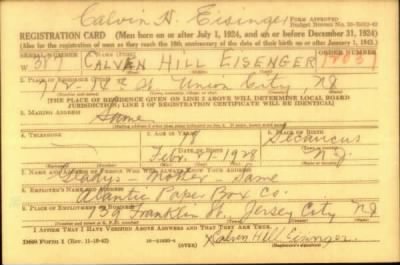 Calvin H. Eisinger
FORM APPROVED
REGISTRATION CARD (Men born on or after July 1, 1924, and on or before December 31, 1924)
(Also for the registration of men as they reach the 18th anniversary of the date of their birth on or after January 1, 1943.)
SERIAL NUMBER
W CALVEN HILL EISENGER
2. PLACE OF RESIDENCE
712 - 14th St. Union City NJ
(THE PLACE OF RESIDENCE GIVEN ON LINE 2 ABOVE WILL DETERMINE LOCAL BOARD
JURISDICTION; LINE 2 OF REGISTRATION CERTIFICATE WILL BE IDENTICAL)
3. MAILING ADDRESS
Same
4. TELEPHONE 5. AGE IN YEARS 6. PLACE OF BIRTH
18 Secaucus
Febr. 1928 NJ
7. NAME AND ADDRESS OF PERSON WHO WILL ALWAYS KNOW YOUR ADDRESS
Gladys - Mother - Same
8. EMPLOYER'S NAME AND ADDRESS
Atlantic Paper Box Co.
9. PLACE OF EMPLOYMENT
139 Franklin St., Jersey City NJ
I AFFIRM THAT I HAVE VERIFIED ABOVE ANSWERS AND THAT THEY ARE TRUE.
DSS Form 1 (Rev. 11-16-42) (OVER) Calven Hill Eisinger